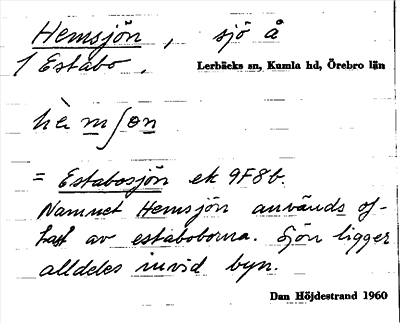 Hemsjön, sjö å
1 Estabo. Lerbäcks sn, Kumla hd, Örebro län
hè m ʃ ɵ n
= Estabosjön ek 9F8b.
Namnet Hemsjön används of-
tast av estaboborna. Sjön ligger
alldeles invid byn.
Dan Höjdestrand 1960